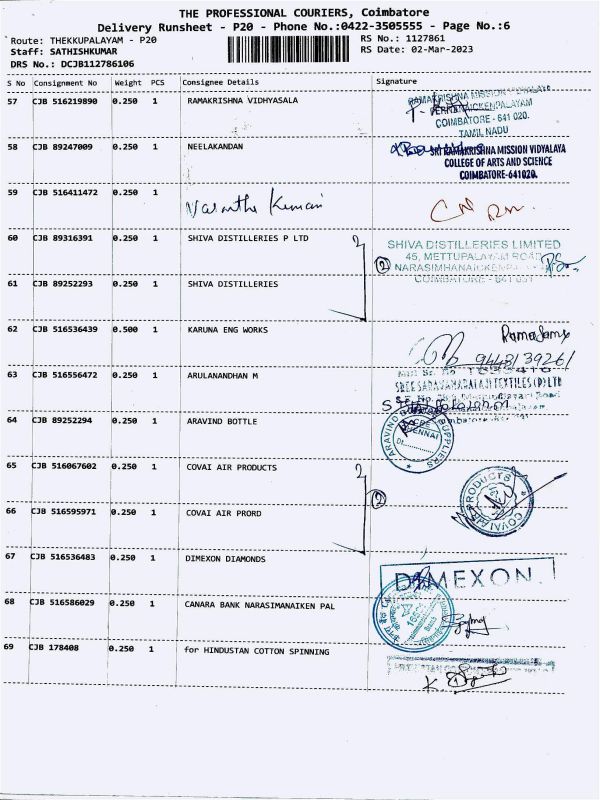 THE PROFESSIONAL COURIERS, Coimbatore
Delivery Runsheet - P20 - Phone No.:0422-3505555 - Page No.:6
Route: THEKKUPALAYAM - P20 RS No.: 1127861
Staff: SATHISHKUMAR RS Date: 02-Mar-2023
DRS No.: DCJB112786106
S No Consignment No Weight PCS Consignee Details Signature
57 CJB 516219890 0.250 1 RAMAKRISHNA VIDHYASALA
RAMAKRISHNA MISSION VIDYALAYA
PERIANAICKENPALAYAM
COIMBATORE - 641 020.
TAMIL NADU
58 CJB 89247009 0.250 1 NEELAKANDAN
SRI RAMAKRISHNA MISSION VIDYALAYA
COLLEGE OF ARTS AND SCIENCE
COIMBATORE-641020.
59 CJB 516411472 0.250 1 Vasantha Kumari
60 CJB 89316391 0.250 1 SHIVA DISTILLERIES P LTD
2
SHIVA DISTILLERIES LIMITED
45, METTUPALAYAM ROAD
61 CJB 89252293 0.250 1 SHIVA DISTILLERIES
COIMBATORE - 641 031
62 CJB 516536439 0.500 1 KARUNA ENG WORKS
63 CJB 516556472 0.250 1 ARULANANDHAN M
64 CJB 89252294 0.250 1 ARAVIND BOTTLE
ARAVIND BOTTLE SUPPLIERS
CHENNAI
65 CJB 516067602 0.250 1 COVAI AIR PRODUCTS
2
COVAI AIR PRODUCTS
66 CJB 516595971 0.250 1 COVAI AIR PRORD
67 CJB 516536483 0.250 1 DIMEXON DIAMONDS
DIMEXON
68 CJB 516586029 0.250 1 CANARA BANK NARASIMANAIKEN PAL
69 CJB 178408 0.250 1 for HINDUSTAN COTTON SPINNING